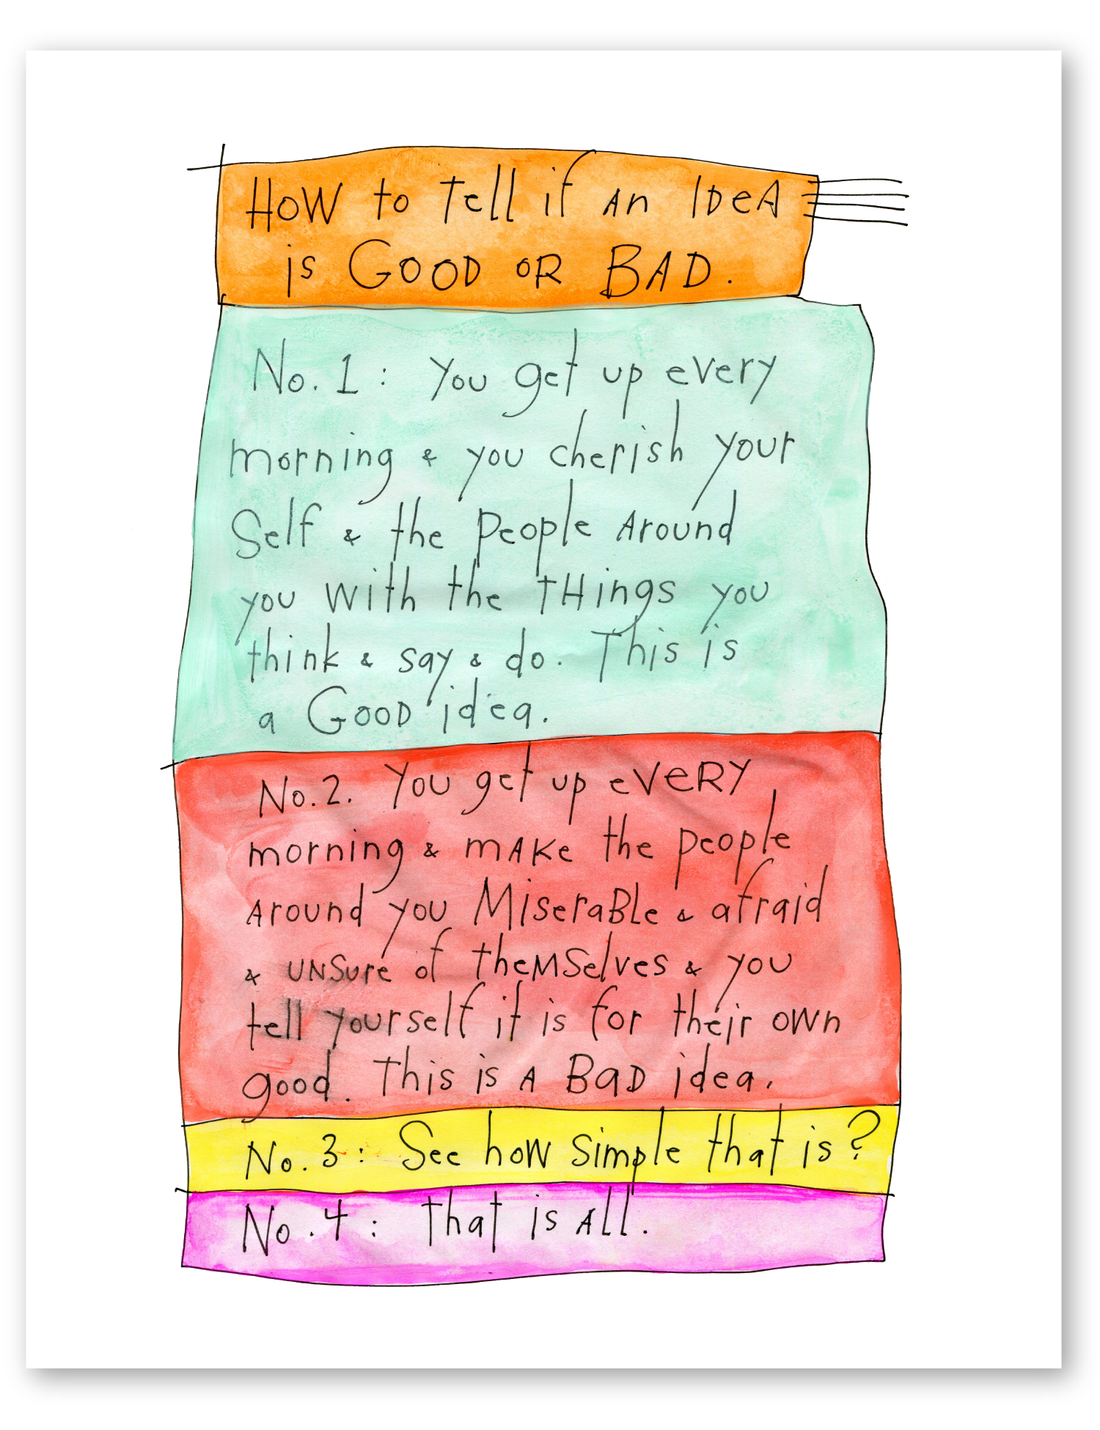 HOW to Tell if AN IDeA
is GOOD OR BAD.
No. 1 : You get up every
morning & you cherish your
Self & the people Around
you with the tHings you
think & say & do. This is
a GOOD idea.
No. 2. You get up eVERY
morning & mAKe the people
Around you MiseraBle & afraid
& UNSure of theMSelves & you
tell yourself it is for their own
good. This is A BaD idea.
No. 3 : See how simple that is?
No. 4 : that is All.